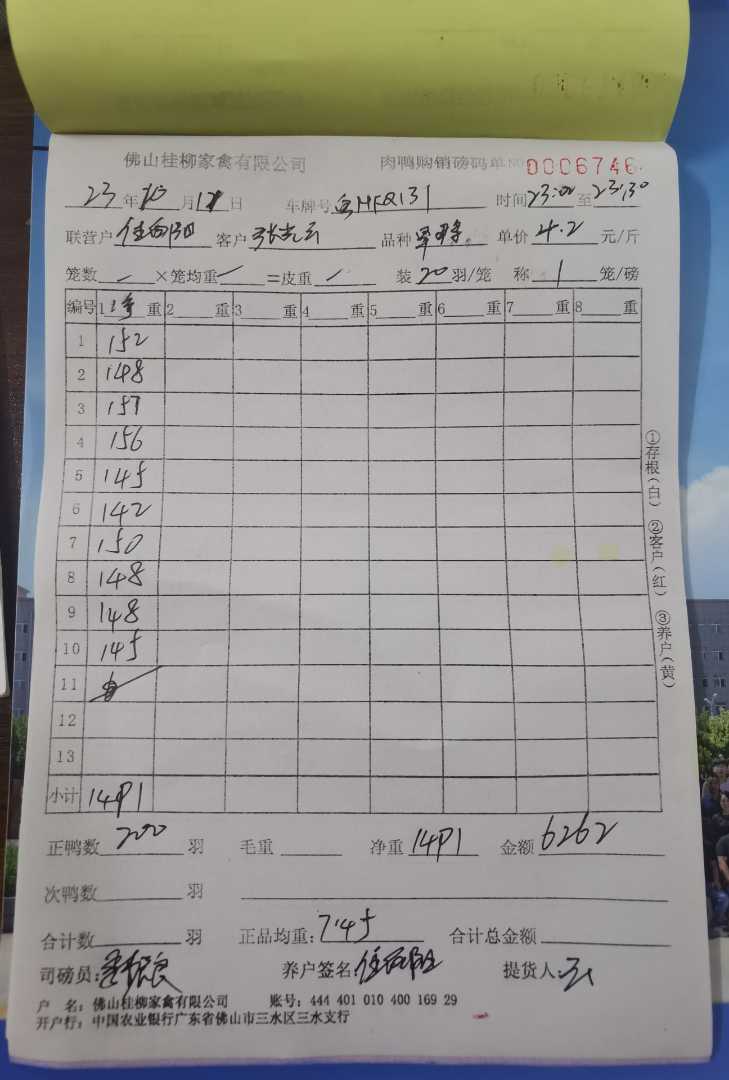 佛山桂柳家禽有限公司 肉鸭购销磅码单 NO 0006746
23年10月11日 车牌号MFQ131 时间23:00至23:30
联营户 客户张光云 品种 单价4.2元/斤
笼数×笼均重=皮重 装20羽/笼 称1笼/磅
编号 1 净重 2 重 3 重 4 重 5 重 6 重 7 重 8 重
1 152
2 148
3 157
4 156
5 145
6 142
7 150
8 148
9 148
10 145
11
12
13
小计 1491
①存根(白) ②客户(红) ③养户(黄)
正鸭数200羽 毛重 净重1491 金额6262
次鸭数 羽
合计数 羽 正品均重:7.45 合计总金额
司磅员: 养户签名: 提货人:云
户 名:佛山桂柳家禽有限公司 账号:444 401 010 400 169 29
开户行:中国农业银行广东省佛山市三水区三水支行